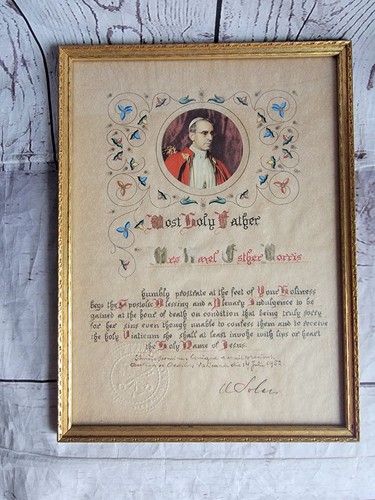 Most Holy Father
Mrs Esther Morris
humbly prostrate at the feet of Your Holiness
begs the Apostolic Blessing and a Plenary Indulgence to be
gained at the hour of death on condition that being truly sorry
for her sins even though unable to confess them and to receive
the holy Viaticum she shall at least invoke with lips or heart
the Holy Name of Jesus.